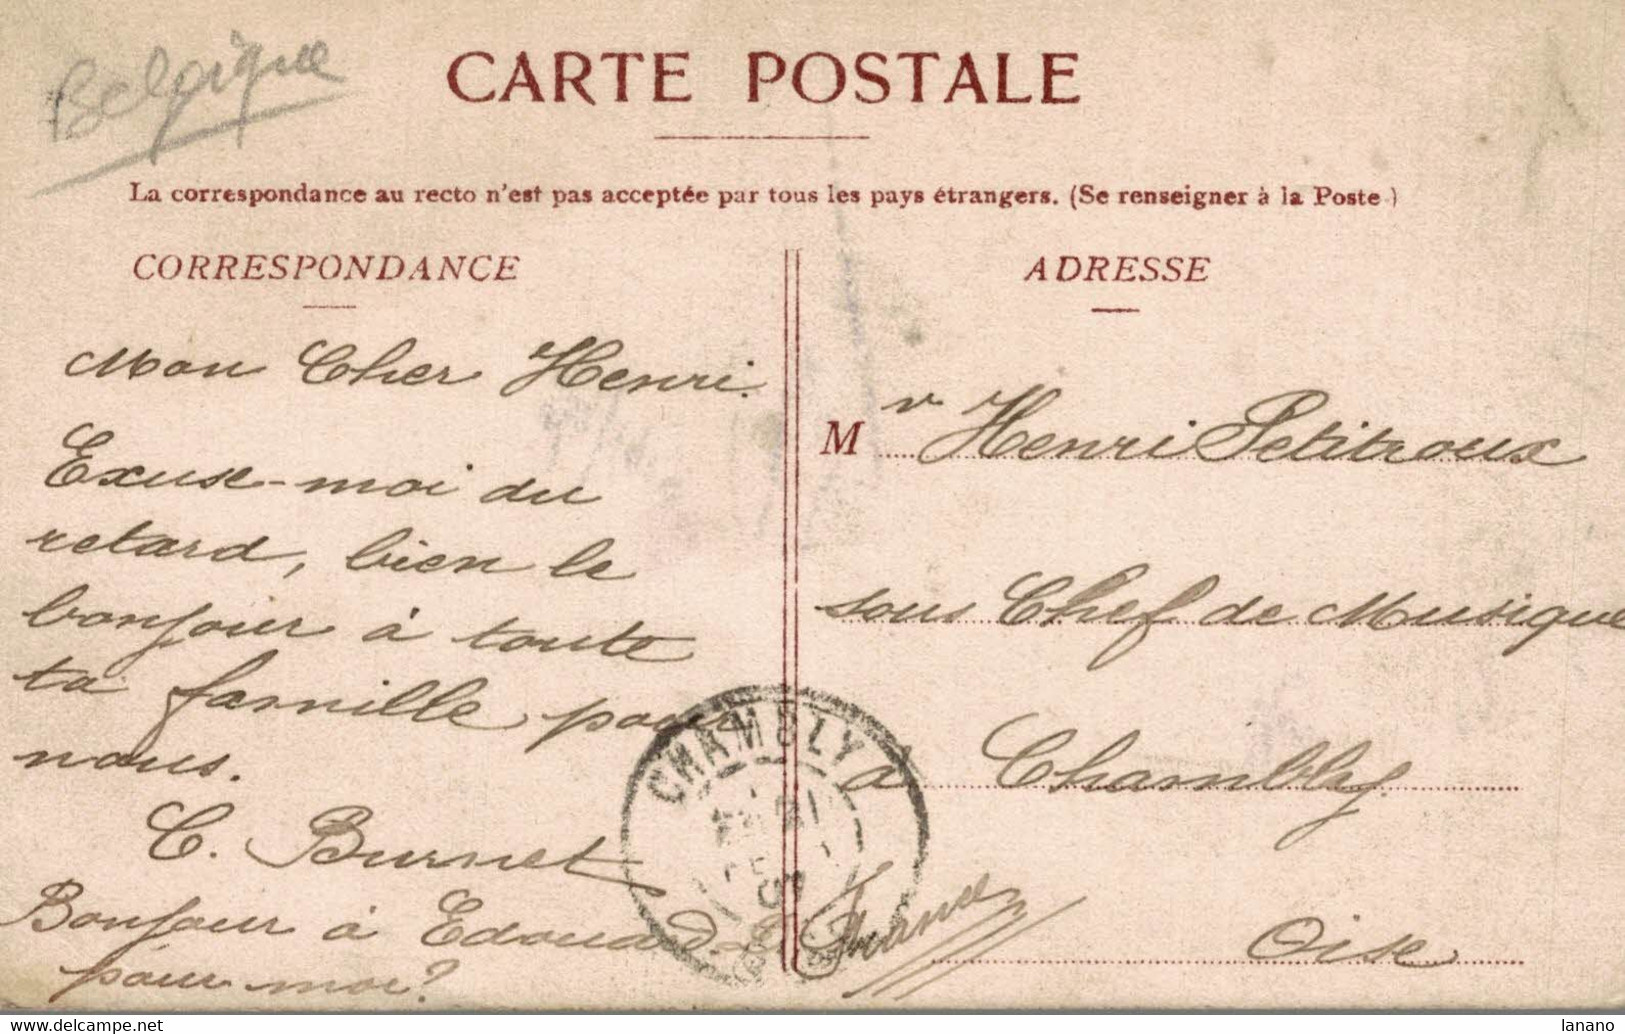 Belgique
CARTE POSTALE
La correspondance au recto n'est pas acceptée par tous les pays étrangers. (Se renseigner à la Poste)
CORRESPONDANCE
Mon Cher Henri.
Exuse-moi du
retard, bien le
bonjour à toute
ta famille pour
nous.
C. Burnet
Bonjour à Edouard
pour moi?
ADRESSE
Mr Henri Petitroux
sous Chef de Musique
à Chambly
Oise
France
CHAMBLY
delcampe.net
lanano